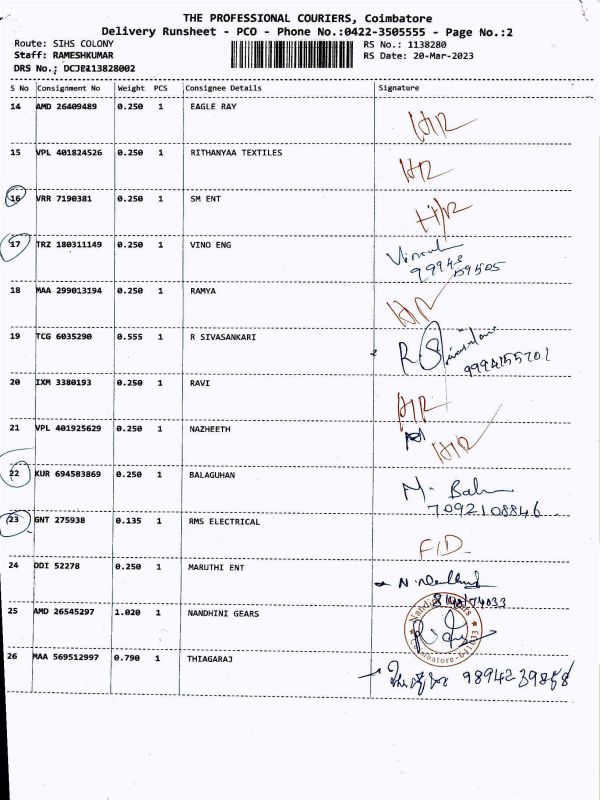 THE PROFESSIONAL COURIERS, Coimbatore
Delivery Runsheet - PCO - Phone No.:0422-3505555 - Page No.:2
Route: SIHS COLONY RS No.: 1138280
Staff: RAMESHKUMAR RS Date: 20-Mar-2023
DRS No.:
S No Consignment No Weight PCS Consignee Details Signature
14 AMD 26409489 0.250 1 EAGLE RAY
15 VPL 401824526 0.250 1 RITHANYAA TEXTILES
16 VRR 7190381 0.250 1 SM ENT
17 TRZ 180311149 0.250 1 VINO ENG
18 MAA 299013194 0.250 1 RAMYA
19 TCG 6035290 0.555 1 R SIVASANKARI
20 IXM 3380193 0.250 1 RAVI
21 VPL 401925629 0.250 1 NAZHEETH
22 KUR 694583869 0.250 1 BALAGUHAN
M. Bal
7092108846
23 GNT 275938 0.135 1 RMS ELECTRICAL
F/D
24 DDI 52278 0.250 1 MARUTHI ENT
25 AMD 26545297 1.020 1 NANDHINI GEARS
26 MAA 569512997 0.790 1 THIAGARAJ